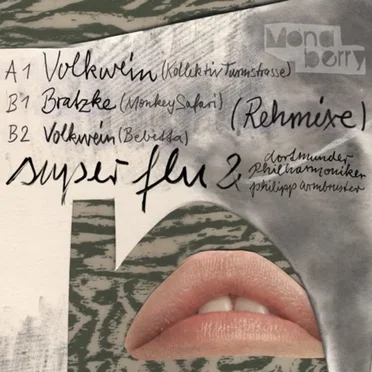 Mona
berry
A1 Volkwein (Kollektiv Turmstrasse)
B1 Bratzke (Monkey Safari)
(Rehmixe)
B2 Volkwein (Bebetta)
super flu &
dortmunder
philharmoniker
philipp armbruster